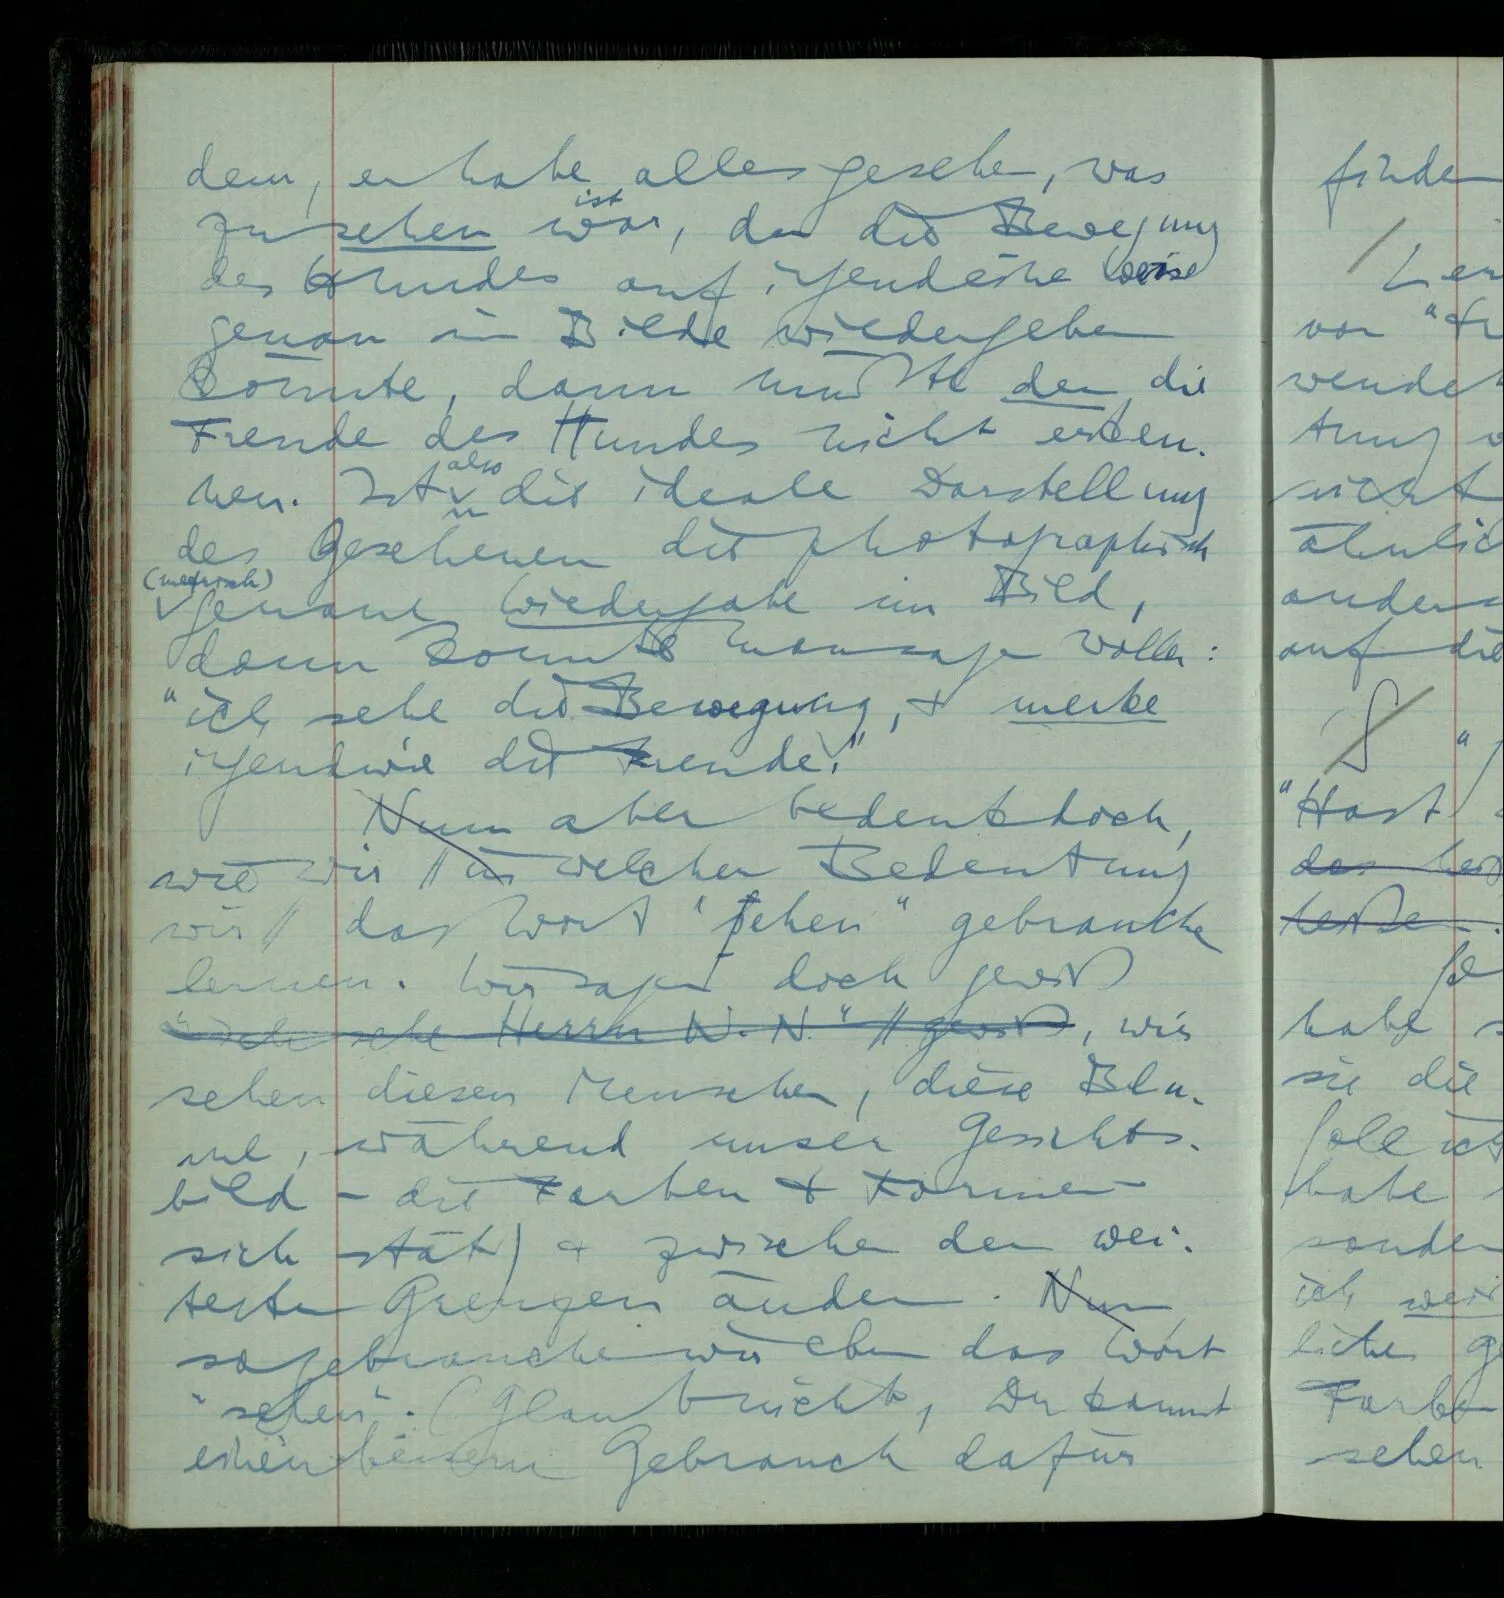 dem, er habe alles gesehen, was
ist
zu sehen war, der die Bewegung
des Hundes auf irgendeine Weise
genau im Bilde wiedergeben
könnte, dann müßte der die
Freude des Hundes nicht erken-
also
nen. Ist die ideale Darstellung
des Gesehenen die photographisch
(metrisch)
genaue Wiedergabe im Bild,
dann könnte man sagen wollen:
"ich sehe die Bewegung, & merke
irgendwie die Freude."
Nun aber bedenk doch,
wie wir // in welcher Bedeutung
wir // das Wort "sehen" gebrauchen
lernen. Wir sagen doch gewiß
"ich sehe Herrn N.N." // gewiß, wir
sehen diesen Menschen, diese Blu-
me, während unser Gesichts-
bild – die Farben & Formen –
sich stätig & zwischen den wei-
testen Grenzen ändern. Nun
so gebrauchen wir eben das Wort
"sehen". (Glaub nicht, Du kannst
einen bessern Gebrauch dafür
finden
von
wendet
nicht
ähnlich
anders
auf die
"Hast
das
habe
sie die
habe
sondern
ich
liche
Farbe
sehen